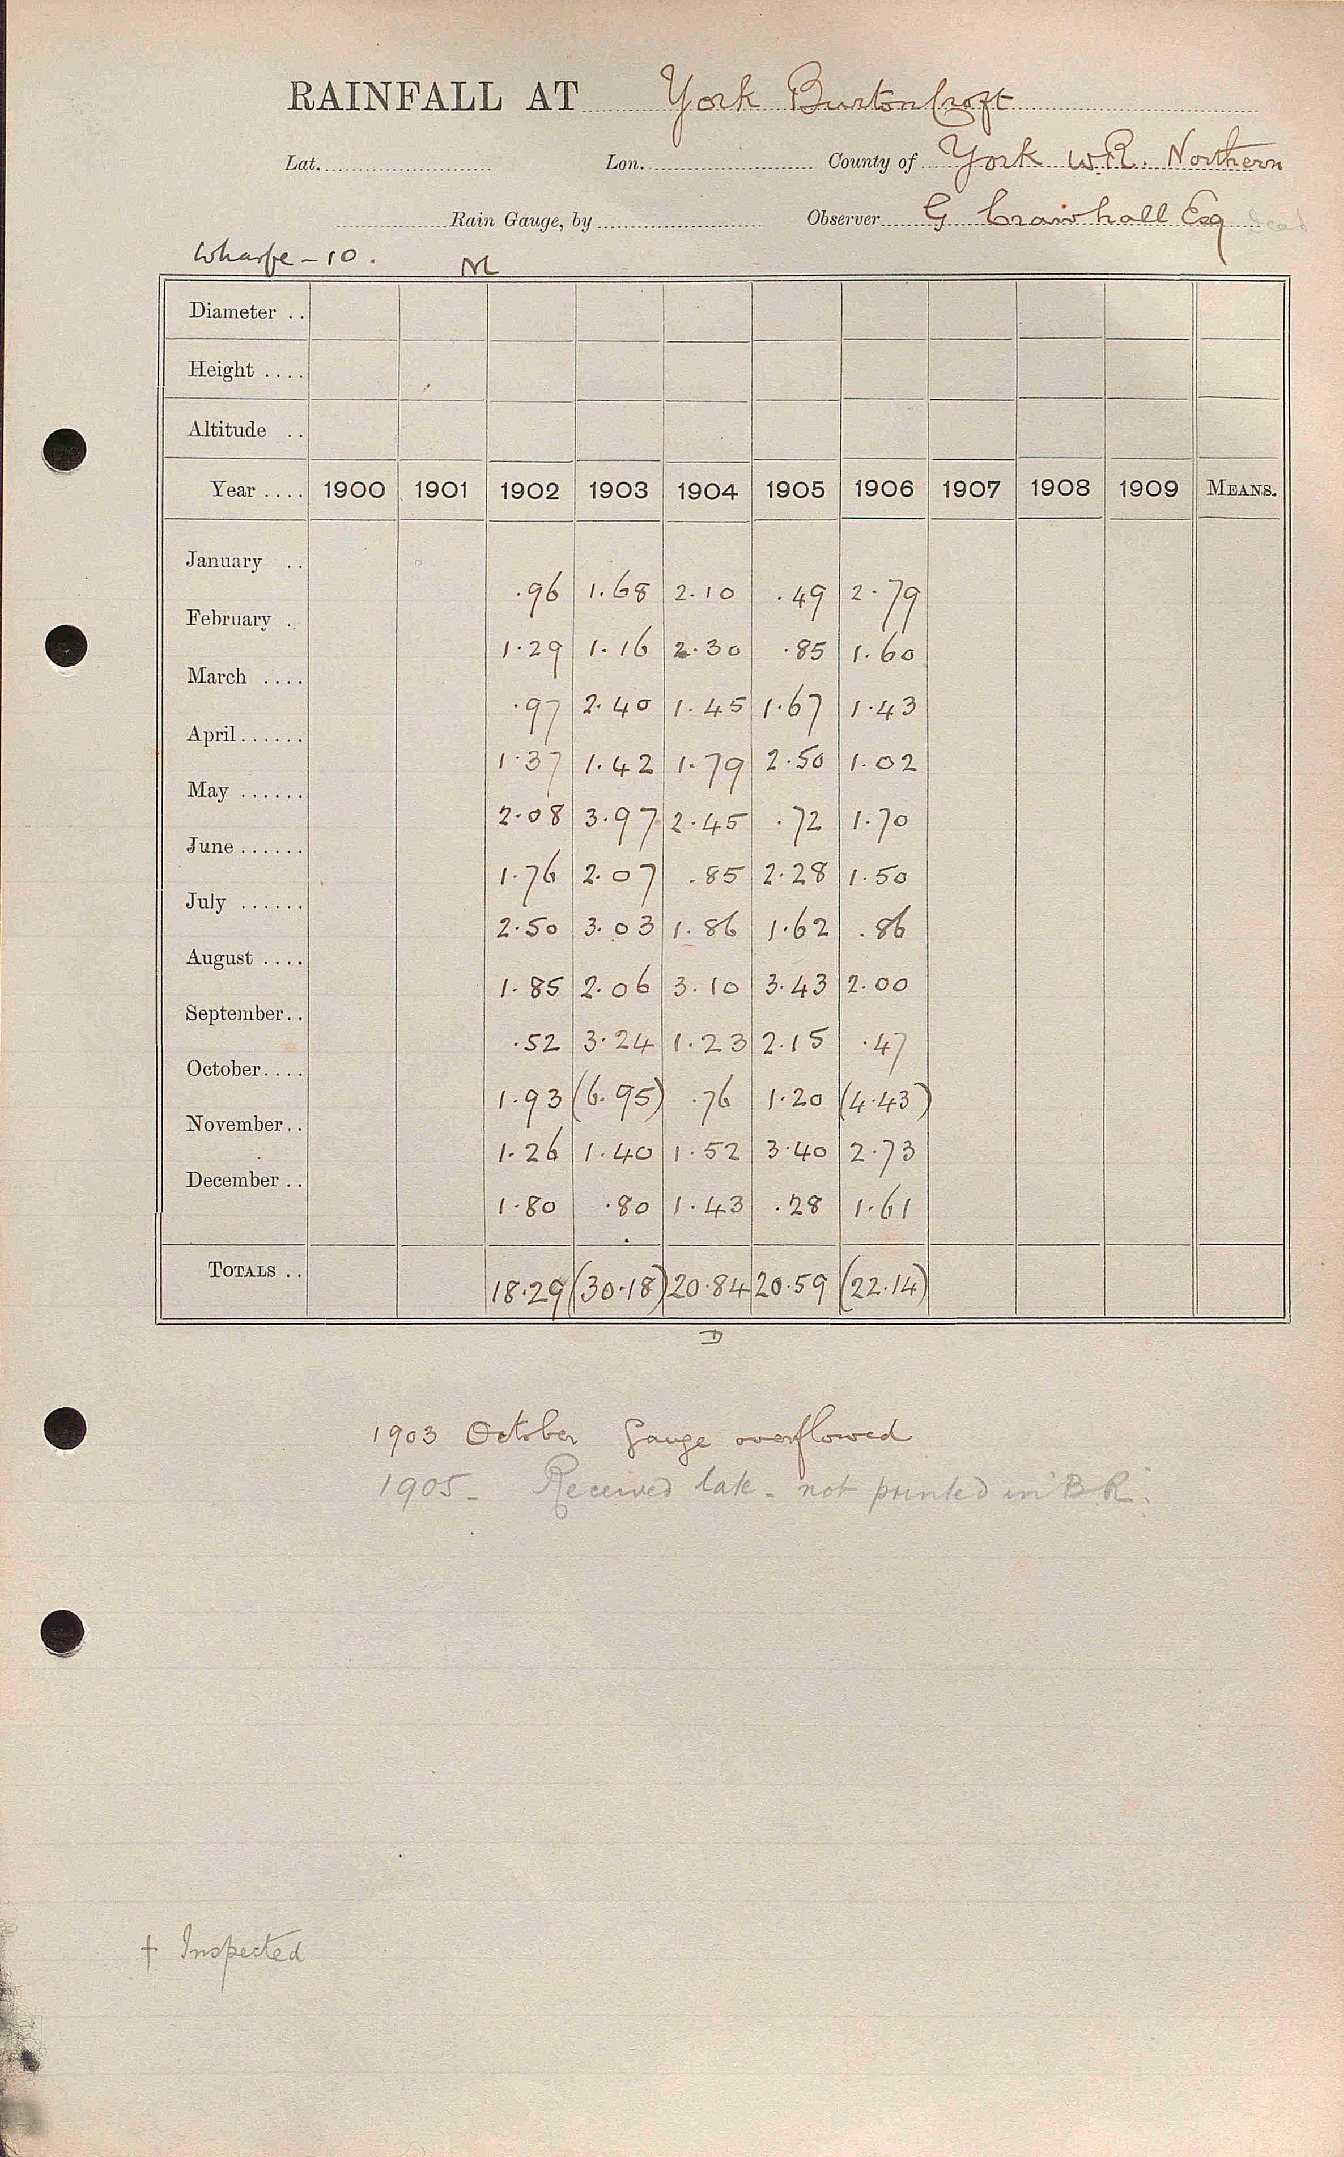 RAINFALL AT York Burton Croft
Lat. Lon. County of York W.R. Northern
Rain Gauge, by Observer G Crawhall Esq Dead
Wharfe - 10.
Diameter ..
Height ....
Altitude ..
Year .... 1900 1901 1902 1903 1904 1905 1906 1907 1908 1909 MEANS.
January .. .96 1.68 2.10 .49 2.79
February . 1.29 1.16 2.30 .85 1.60
March .... .97 2.40 1.45 1.67 1.43
April...... 1.37 1.42 1.79 2.50 1.02
May ...... 2.08 3.97 2.45 .72 1.70
June ...... 1.76 2.07 .85 2.28 1.50
July ...... 2.50 3.03 1.86 1.62 .86
August .... 1.85 2.06 3.10 3.43 2.00
September.. .52 3.24 1.23 2.15 .47
October.... 1.93 (6.95) .76 1.20 (4.43)
November.. 1.26 1.40 1.52 3.40 2.73
December .. 1.80 .80 1.43 .28 1.61
TOTALS .. 18.29 (30.18) 20.84 20.59 (22.14)
D
1903 October Gauge overflowed
1905 - Received late - not printed in 'B R'.
† Inspected